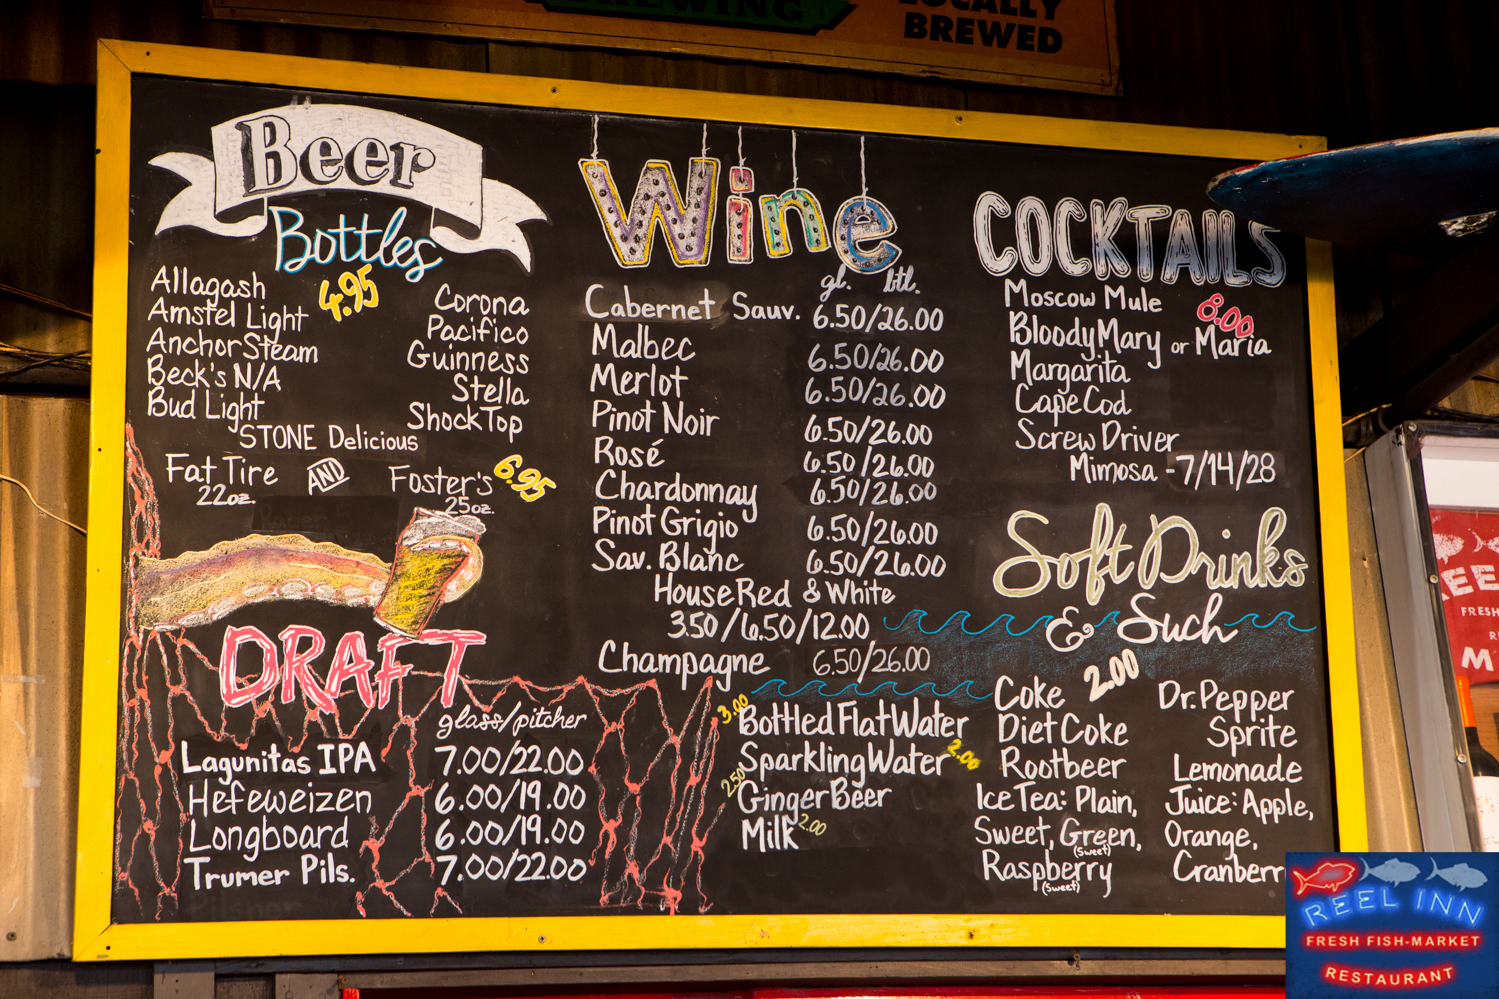 BREWING
LOCALLY
BREWED
Beer
Bottles
4.95
Allagash
Amstel Light
Anchor Steam
Beck's N/A
Bud Light
Corona
Pacifico
Guinness
Stella
Shock Top
STONE Delicious
Fat Tire
22oz.
AND
Foster's
25oz.
6.95
DRAFT
glass/pitcher
Lagunitas IPA 7.00/22.00
Hefeweizen 6.00/19.00
Longboard 6.00/19.00
Trumer Pils. 7.00/22.00
Wine
gl. btl.
Cabernet Sauv. 6.50/26.00
Malbec 6.50/26.00
Merlot 6.50/26.00
Pinot Noir 6.50/26.00
Rosé 6.50/26.00
Chardonnay 6.50/26.00
Pinot Grigio 6.50/26.00
Sav. Blanc 6.50/26.00
House Red & White
3.50/6.50/12.00
Champagne 6.50/26.00
3.00 Bottled Flat Water
Sparkling Water 2.00
2.50 Ginger Beer
Milk 2.00
COCKTAILS
Moscow Mule 8.00
Bloody Mary or Maria
Margarita
Cape Cod
Screw Driver
Mimosa -7/14/28
Soft Drinks
& Such
2.00
Coke
Diet Coke
Rootbeer
Ice Tea: Plain,
Sweet, Green,
(Sweet)
Raspberry
(Sweet)
Dr. Pepper
Sprite
Lemonade
Juice: Apple,
Orange,
Cranberr
FRESH
REEL INN
FRESH FISH-MARKET
RESTAURANT